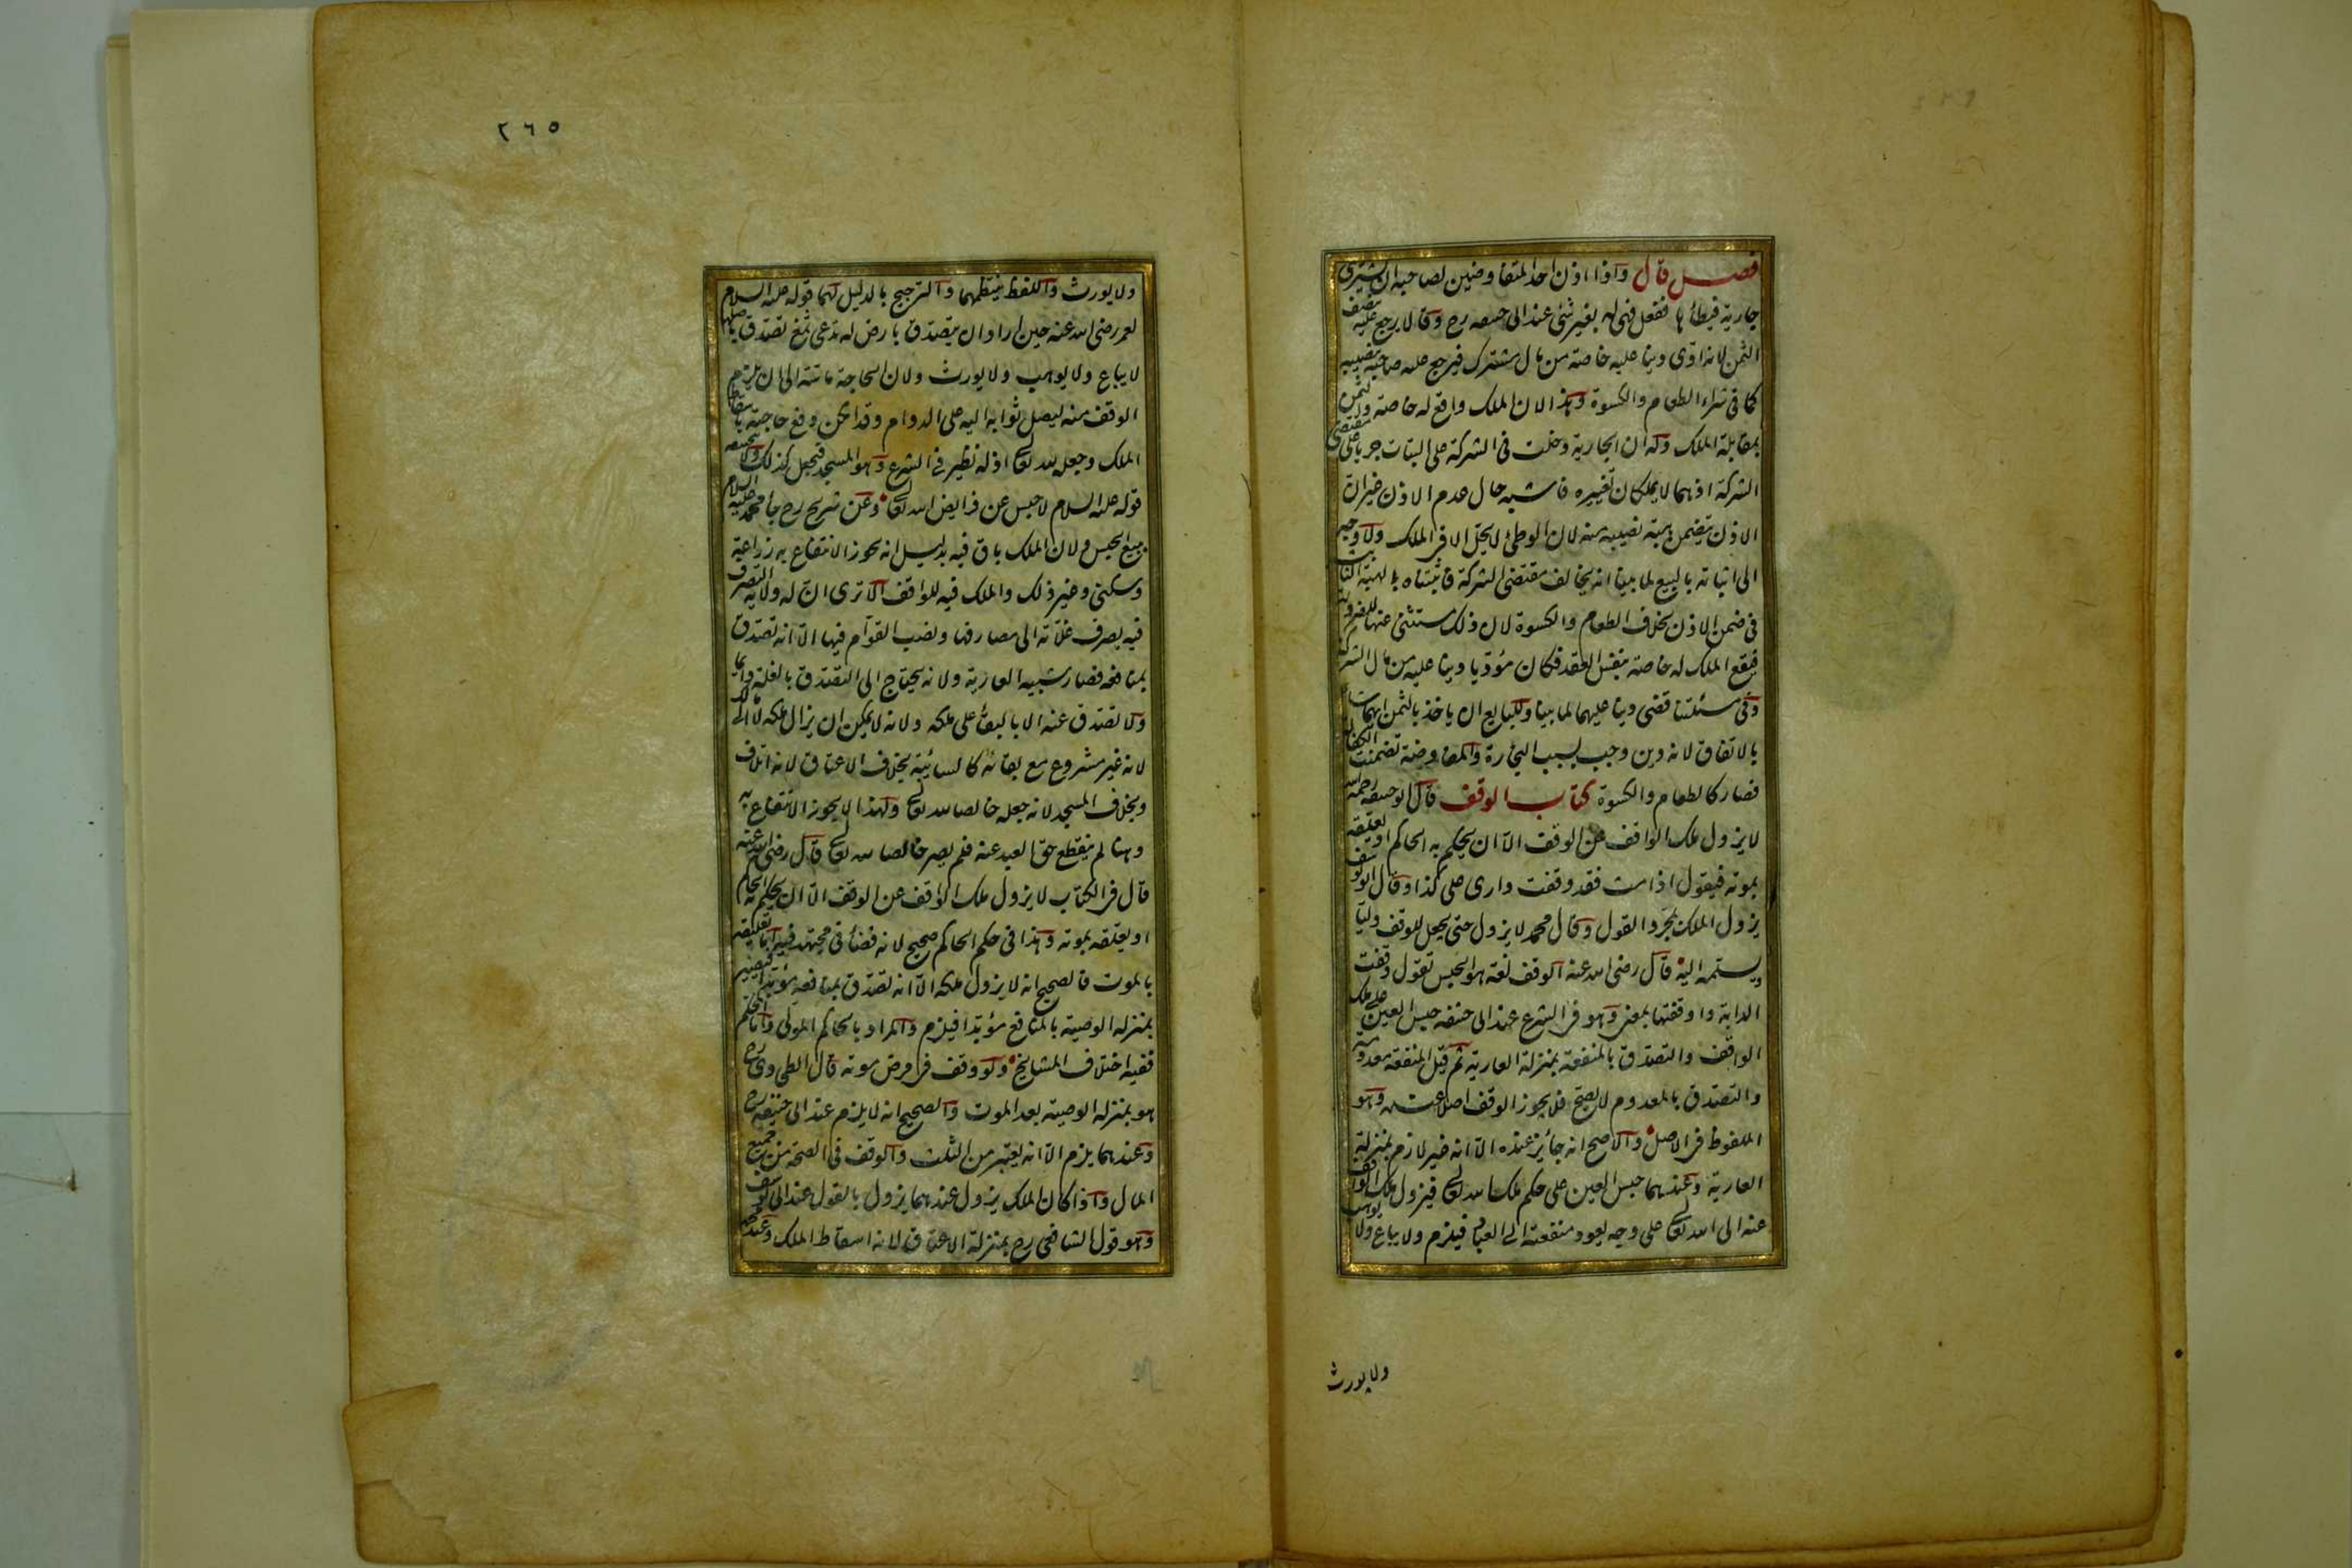 فصل قال واذا اذن احد المتفاوضين لصاحبه ان يشترى
جارية فيطأها ففعل فهى له بغير شئ عند ابى حنيفه رح وقالا يرجع عليه بنصف
الثمن لانه ادّى دينا عليه خاصة من مال مشترك فيرجع عليه صاحبه بنصيبه
كما فى شراء الطعام والكسوة وهذا لان الملك واقع له خاصة والثمن
بمقابلة الملك وله ان الجارية دخلت فى الشركة على البتات جريا على مقتضى
الشركة اذ هما لا يملكان تغييره فاشبه حال عدم الاذن غير ان
الاذن يتضمن هبة نصيبه منه لان الوطئ لا يحل الا فى الملك ولا وجه
الى اثباته بالبيع لما بينا انه يخالف مقتضى الشركة فاثبتناه بالهبة الثابتة
فى ضمن الاذن بخلاف الطعام والكسوة لان ذلك مستثنى عنها للضرورة
فيقع الملك له خاصة بنفس العقد فكان مؤديا دينا عليه من مال الشركة
وفى مسئلتنا قضى دينا عليهما لما بينا وللبايع ان ياخذ بالثمن ايهما شاء
بالاتفاق لانه دين وجب بسبب التجارة والمفاوضة تضمنت الكفالة
فصار كالطعام والكسوة كتاب الوقف قال ابو حنيفه رحمه الله
لا يزول ملك الواقف عن الوقف الّا ان يحكم به الحاكم او يعلّقه
بموته فيقول اذا مت فقد وقفت دارى على كذا وقال ابو يوسف
يزول الملك بمجرد القول وقال محمد لا يزول حتى يجعل للوقف وليّا
ويسلّمه اليه قال رضى الله عنه الوقف لغة هو الحبس تقول وقفت
الدابة واوقفتها بمعنى وهو فى الشرع عند ابى حنيفه حبس العين على ملك
الواقف والتصدّق بالمنفعة بمنزلة العارية ثم قيل المنفعة معدومة
والتصدّق بالمعدوم لا يصح فلا يجوز الوقف اصلا عنده وهو
الملفوظ فى الاصل والاصح انه جائز عنده الّا انه غير لازم بمنزلة
العارية وعندهما حبس العين على حكم ملك الله تعالى فيزول ملك الواقف
عنه الى الله تعالى على وجه يعود منفعته الى العباد فيلزم ولا يباع ولا يوهب
ولا يورث
٢٦٥
ولا يورث واللفظ ينتظمهما والترجيح بالدليل لهما قوله عليه السلام
لعمر رضى الله عنه حين اراد ان يتصدق بارض له تدعى ثمغ تصدق باصلها
لا يباع ولا يوهب ولا يورث ولان الحاجة ماسّة الى ان يلزم
الوقف منه ليصل ثوابه اليه على الدوام وقد امكن دفع حاجته باسقاط
الملك وجعله لله تعالى اذ له نظير فى الشرع وهو المسجد فيجعل كذلك ولابى حنيفه
قوله عليه السلام لا حبس عن فرايض الله تعالى وعن شريح رح جاء محمد عليه السلام
ببيع الحبس ولان الملك باق فيه بدليل انه يجوز الانتفاع به زراعة
وسكنى وغير ذلك والملك فيه للواقف الا ترى انّ له ولاية التصرف
فيه بصرف غلّاته الى مصارفها ونصب القوّام فيها الّا انه تصدق
بمنافعه فصار شبيه العارية ولانه يحتاج الى التصدّق بالغلة دايما
ولا تصدق عنه الا بالبقاء على ملكه ولانه لا يمكن ان يزال ملكه لا الى مالك
لانه غير مشروع مع بقائه كالسائبة بخلاف الاعتاق لانه اتلاف
وبخلاف المسجد لانه جعله خالصا لله تعالى ولهذا لا يجوز الانتفاع به
وهنا لم ينقطع حق العبد عنه فلم يصر خالصا لله تعالى قال رضى الله عنه
قال فى الكتاب لا يزول ملك الواقف عن الوقف الّا ان يحكم به الحاكم
او يعلّقه بموته وهذا فى حكم الحاكم صحيح لانه قضاء فى مجتهد فيه اما تعليقه
بالموت فالصحيح انه لا يزول ملكه الّا انه تصدّق بمنافعه مؤبّدا فيصير
بمنزلة الوصية بالمنافع مؤبّدا فيلزم والمراد بالحاكم المولّى واما المحكم
ففيه اختلاف المشايخ ولو وقف فى مرض موته قال الطحاوى رح
هو بمنزلة الوصية بعد الموت والصحيح انه لا يلزم عند ابى حنيفه رح
وعندهما يلزم الّا انه يعتبر من الثلث والوقف فى الصحة من جميع
المال واذا كان الملك يزول عندهما يزول بالقول عند ابى يوسف
وهو قول الشافعى رح بمنزلة الاعتاق لانه اسقاط الملك وعند محمد